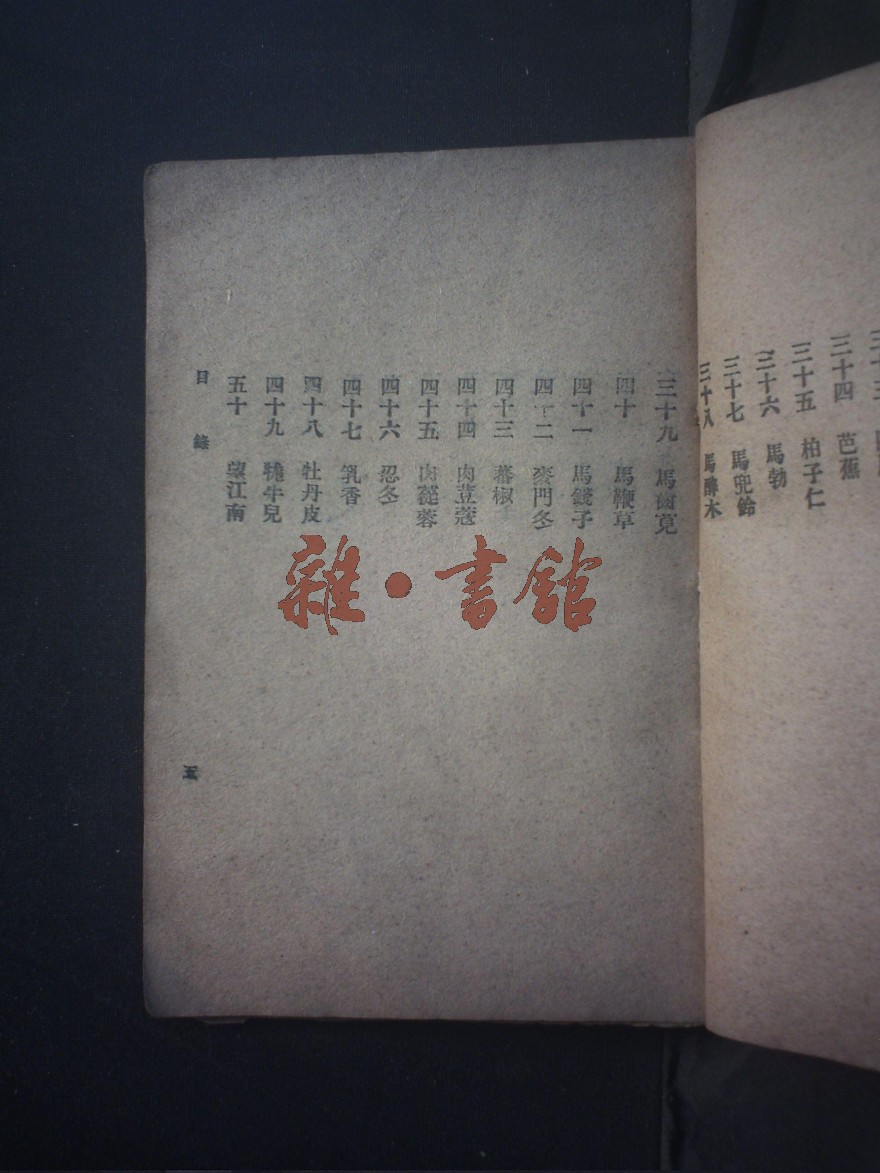 三十四 芭蕉
三十五 柏子仁
三十六 馬勃
三十七 馬兜鈴
三十八 馬醉木
三十九 馬齒莧
四十 馬鞭草
四十一 馬錢子
四十二 麥門冬
四十三 蕃椒
四十四 肉荳蔻
四十五 肉蓯蓉
四十六 忍冬
四十七 乳香
四十八 牡丹皮
四十九 牽牛兒
五十 望江南
目錄
五
雜•書館